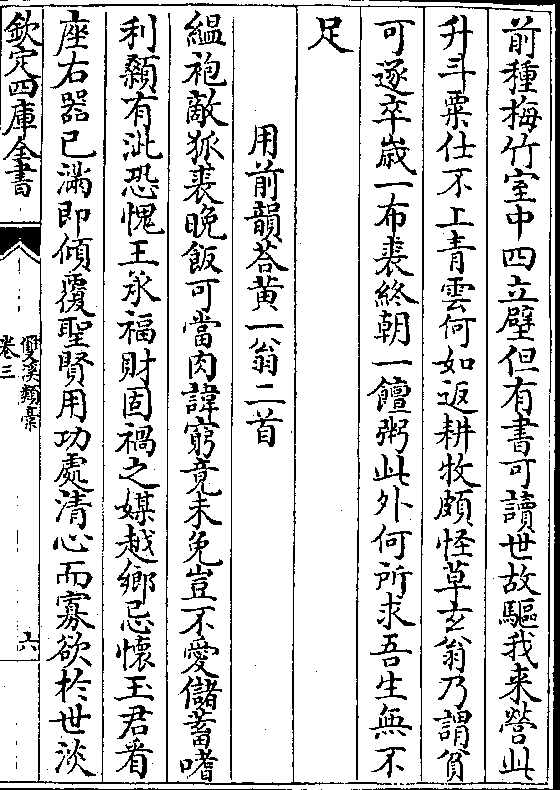 前種梅竹室中四立壁但有書可讀世故驅我来營此
升斗粟仕不上青雲何如返耕牧頗怪草玄翁乃謂貧
可逐卒歲一布裘終朝一饘粥此外何所求吾生無不
足
用前韻荅黄一翁二首
緼袍敵狐裘晩飯可當肉諱窮竟未免豈不愛儲蓄嗜
利顙有泚恐愧王承福財固禍之媒越鄉忌懷玉君看
座右器已滿即傾覆聖賢用功處清心而寡欲於世淡
欽定四庫全書
雙溪類稾
卷三
六